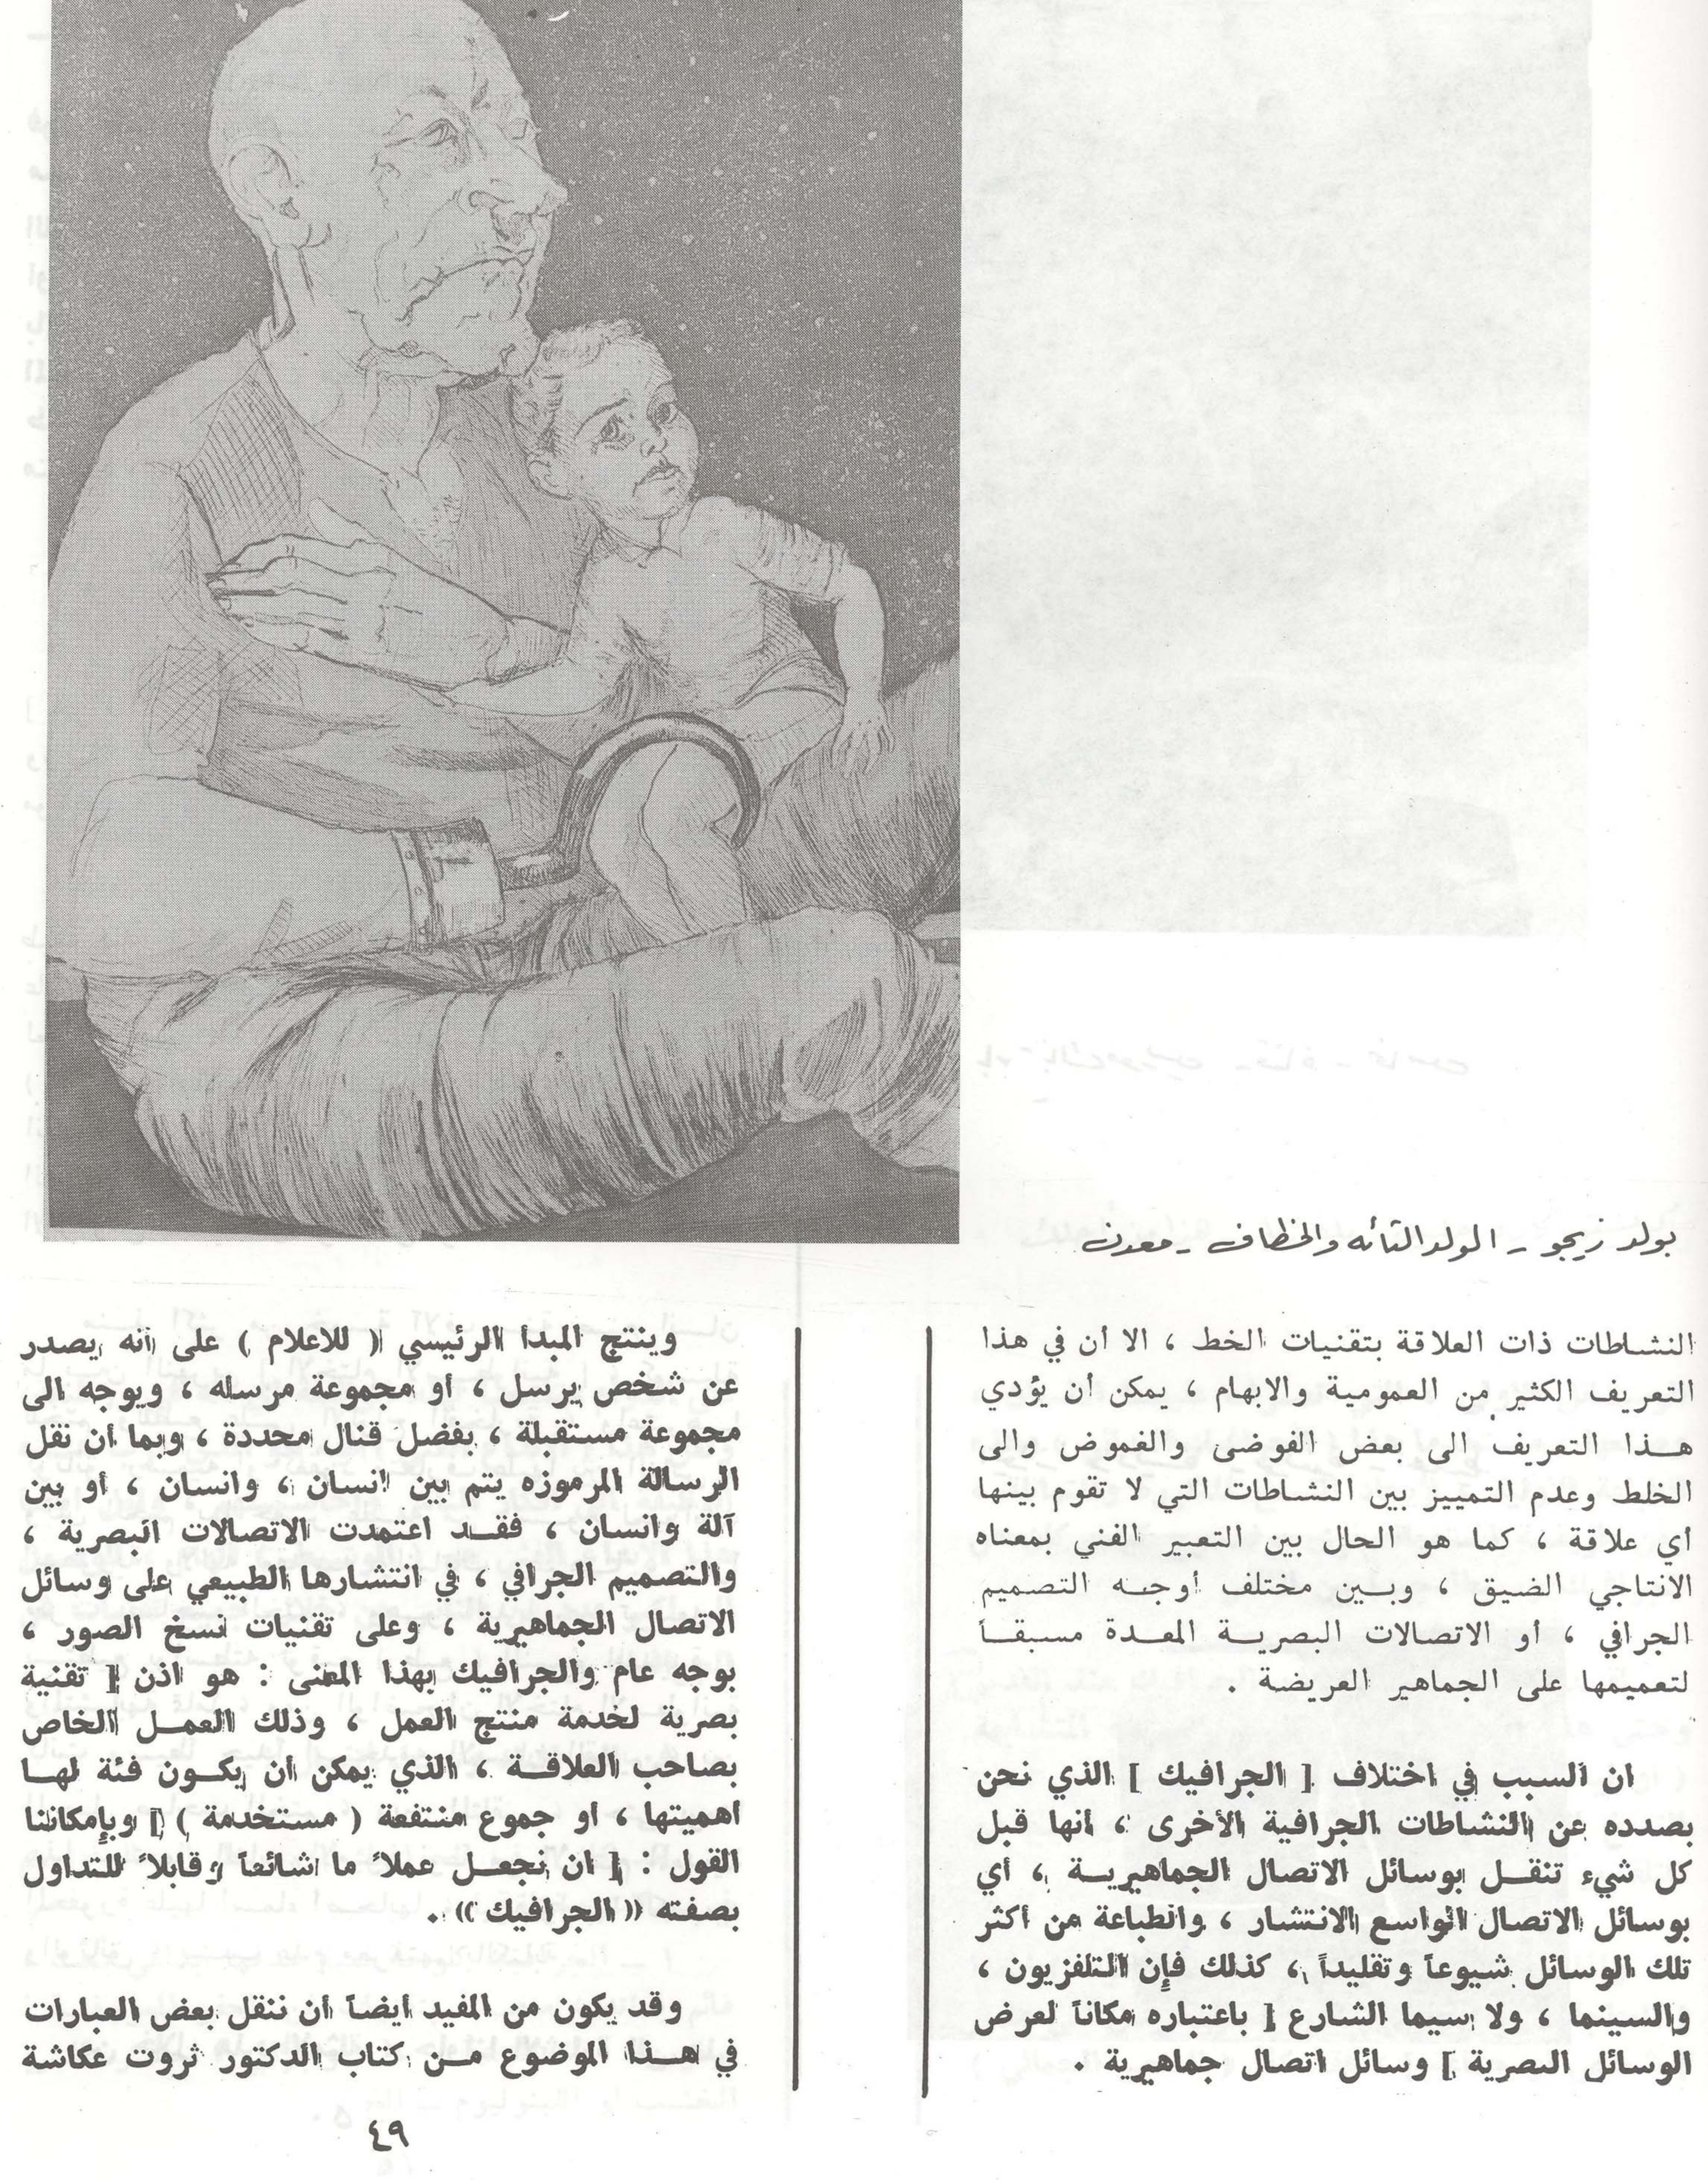 بولد زيجو - الولد التائه والخطاف - معدن
النشاطات ذات العلاقة بتقنيات الخط ، الا أن في هذا
التعريف الكثير من العمومية والابهام ، يمكن أن يؤدي
هذا التعريف الى بعض الفوضى والغموض والى
الخلط وعدم التمييز بين النشاطات التي لا تقوم بينها
أي علاقة ، كما هو الحال بين التعبير الفني بمعناه
الانتاجي الضيق ، وبين مختلف أوجه التصميم
الجرافي ، أو الاتصالات البصرية المعدة مسبقاً
لتعميمها على الجماهير العريضة .
ان السبب في اختلاف [ الجرافيك ] الذي نحن
بصدده عن النشاطات الجرافية الأخرى ، أنها قبل
كل شيء تنقل بوسائل الاتصال الجماهيرية ، أي
بوسائل الاتصال الواسع الانتشار ، والطباعة من أكثر
تلك الوسائل شيوعاً وتقليداً ، كذلك فإن التلفزيون ،
والسينما ، ولا سيما الشارع [ باعتباره مكاناً لعرض
الوسائل البصرية ] وسائل اتصال جماهيرية .
وينتج المبدأ الرئيسي ( للاعلام ) على أنه يصدر
عن شخص يرسل ، أو مجموعة مرسله ، ويوجه الى
مجموعة مستقبلة ، بفضل قنال محددة ، وبما أن نقل
الرسالة المرموزه يتم بين انسان ، وانسان ، أو بين
آلة وانسان ، فقد اعتمدت الاتصالات البصرية ،
والتصميم الجرافي ، في انتشارها الطبيعي على وسائل
الاتصال الجماهيرية ، وعلى تقنيات نسخ الصور ،
بوجه عام والجرافيك بهذا المعنى : هو اذن [ تقنية
بصرية لخدمة منتج العمل ، وذلك العمل الخاص
بصاحب العلاقة ، الذي يمكن أن يكون فئة لها
أهميتها ، أو جموع منتفعة ( مستخدمة ) ] وبإمكاننا
القول : [ ان نجعل عملاً ما شائعاً وقابلاً للتداول
بصفته (( الجرافيك )) .
وقد يكون من المفيد أيضاً أن ننقل بعض العبارات
في هذا الموضوع من كتاب الدكتور ثروت عكاشة
٤٩